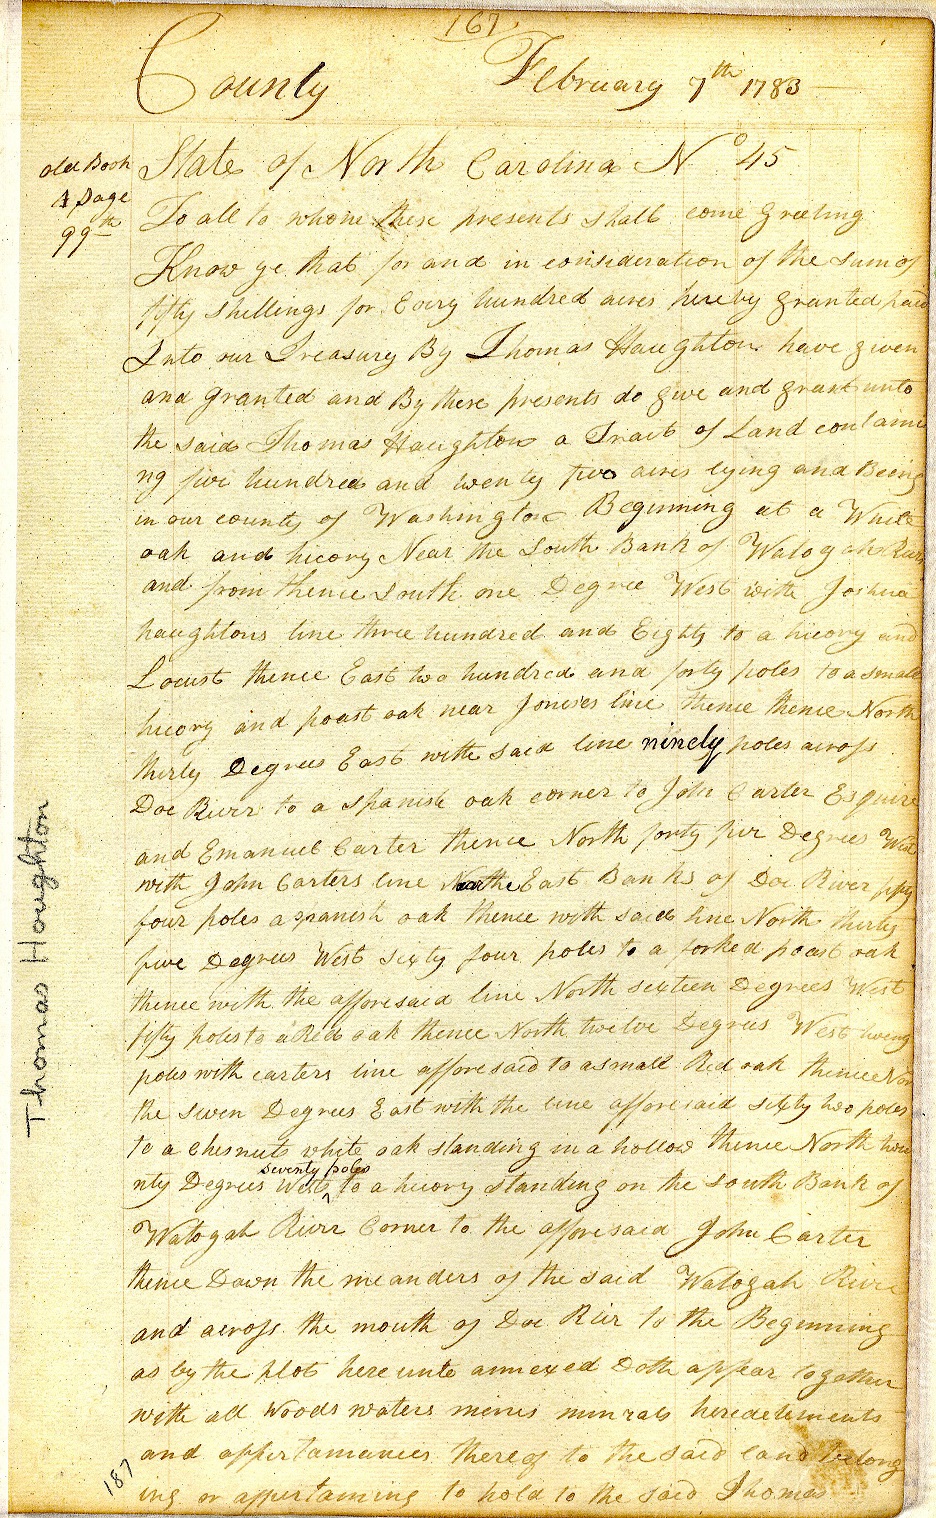 167.
County February 7th 1783
old Book
A page
99th
State of North Carolina No 45
To all to whome these presents shall come Greeting
Know ye that for and in consideration of the sum of
fifty shillings for Every hundred acres hereby granted paid
Into our Treasury By Thomas Haughton have given
and granted and By these presents do give and grant unto
the said Thomas Haughton a Tract of Land containi
ng five hundred and twenty two acres lying and Being
in our county of Washington Beginning at a White
oak and hicory Near the South Bank of Watogah River
and from thence South one Degree West with Joshua
haughtons line three hundred and Eighty to a hicory and
Locust thence East two hundred and forty poles to a small
hicory and poast oak near Joneses line thence thence North
thirty Degrees East with said line ninety poles across
Doe River to a spanish oak corner to John Carter Esquire
and Emanuel Carter thence North forty five Degrees West
with John Carters line East Banks of Doe River fifty
four poles a spanish oak thence with said line North thirty
five Degrees West sixty four poles to a forked poast oak
thence with the afforesaid line North sixteen Degrees West
fifty poles to a Red oak thence North twelve Degrees West twenty
poles with carters line afforesaid to a small Red oak thence Nor
the seven Degrees East with the line afforesaid sixty two poles
to a chesnut white oak standing in a hollow thence North twe
nty Degrees West seventy poles to a hicory standing on the south Bank of
Watogah River Corner to the afforesaid John Carter
thence Down the meanders of the said Watogah River
and across the mouth of Doe River to the Beginning
as by the plot here unto annexed Doth appear togather
with all Woods waters mines minrals heredetements
and appertanances thereof to the said land belong
ing or appertaining to hold to the said Thomas
Thomas Houghton
187